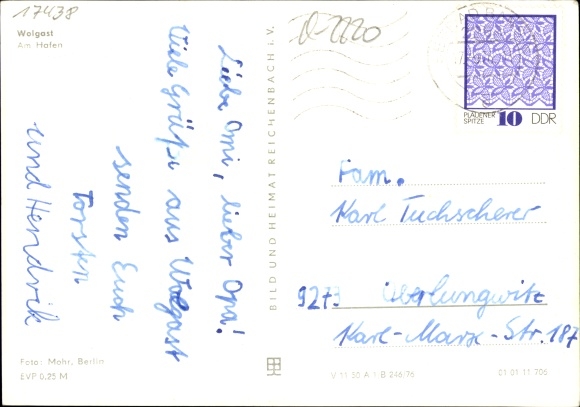 17438
Wolgast
Am Hafen
Liebe Omi, lieber Opa!
Viele Grüße aus Wolgast
senden Euch
Torsten
und Hendrik
Foto: Mohr, Berlin
EVP 0,25 M
BILD UND HEIMAT REICHENBACH i. V.
PLAUENER
SPITZE 10 DDR
Fam.
Karl Tuchscherer
9273 Oberlungwitz
Karl-Marx-Str. 187
V 11 50 A 1 B 246/76
01 01 11 706